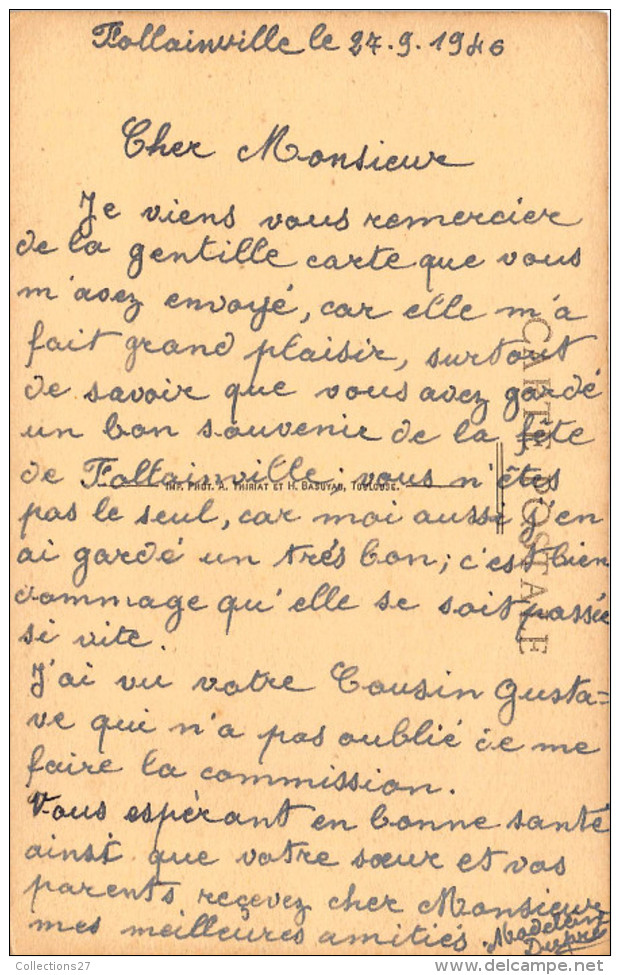 Follainville le 27.9.1946
Cher Monsieur
Je viens vous remercier
de la gentille carte que vous
m'avez envoyé, car elle m'a
fait grand plaisir, surtout
de savoir que vous avez gardé
un bon souvenir de la fête
de Follainville. vous n'êtes
IMP. PHOT. A. THIRIAT ET H. BASUYAU, TOULOUSE.
pas le seul, car moi aussi j'en
ai gardé un trés bon; c'est bien
dommage qu'elle se soit passée
si vite.
J'ai vu votre Cousin Gusta=
ve qui n'a pas oublié de me
faire la commission.
Vous espérant en bonne santé
ainsi que votre sœur et vos
parents reçevez cher Monsieur
mes meilleures amitiés.
Madeleine
CARTE POSTALE
Collections27
www.delcampe.net